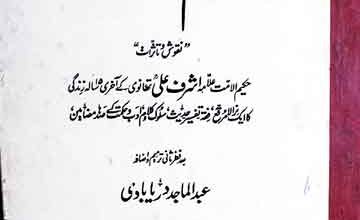 "نقوش و تاثرات"
حکیم الامت علامہ اشرف علی تھانوی کے آخری ۱۵ سالہ زندگی
کا ایک نرالا مرقع، فقہ تفسیر حدیث، سلوک کلام ادب و حکمت کے صدہا مضامین،
بعد نظر ثانی ترمیم و اضافہ
عبدالماجد دریابادی